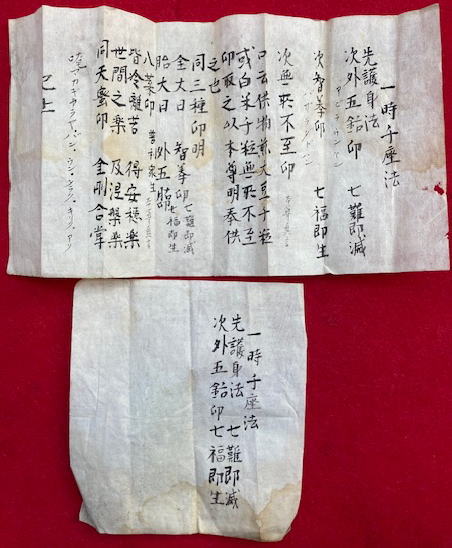 一時千座法
先護身法
次外五鈷印 七難即滅
アビラウンケン
次智拳印 七福即生
次無所不至印
口云供物煎大豆千粒
或白米千粒無所不至
印取之以本尊明奉供
之也
同三種印明
金大日 智拳印 七難即滅
胎大日 外五鈷 七福即生
八葉印
皆令離苦 得安穏楽
世間之楽 及涅槃楽
同天蜜印 金剛合掌
已上
一時千座法
先護身法 七難即滅
次外五鈷印 七福即生